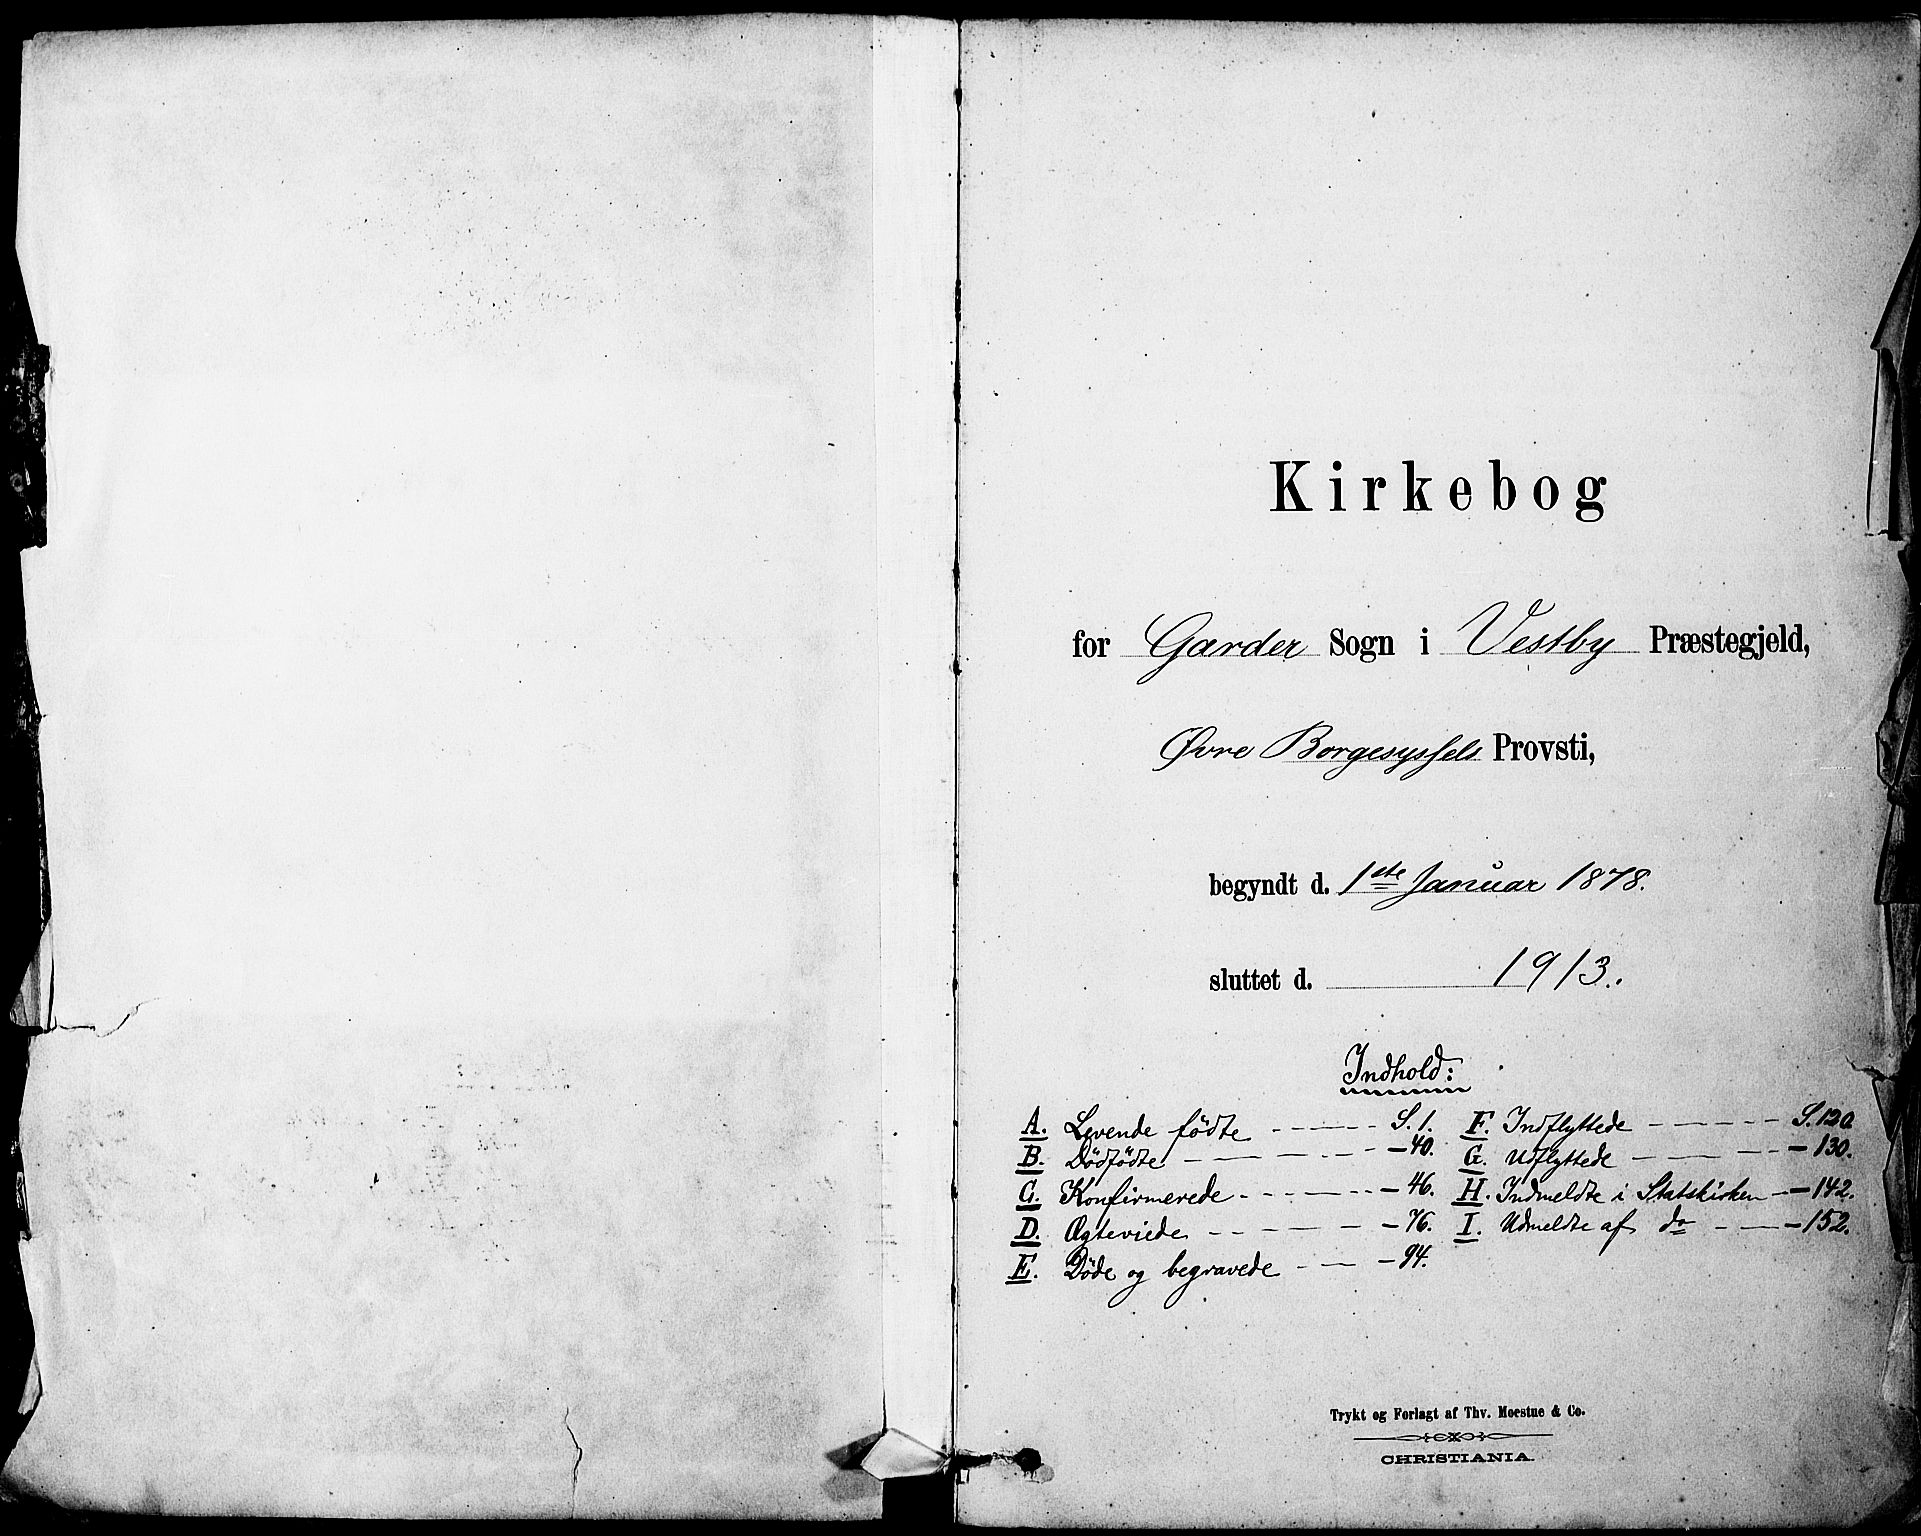 Kirkebog
for Garder Sogn i Vestby Præstegjeld,
Øvre Borgesyssels Provsti,
begyndt d. 1ste Januar 1878.
sluttet d. 1913.
Indhold:
A. Levende fødte - - - - - S. 1.
B. Dødfødte - - - - - - 40.
C. Konfirmerede - - - - - - 46.
D. Ægteviede - - - - - - 76.
E. Døde og begravede - - - - 94.
F. Indflyttede - - - - - S. 120
G. Udflyttede - - - - - - 130.
H. Indmeldte i Statskirken - - 142.
I. Udmeldte af do - - - - 152.
Trykt og Forlagt af Thv. Moestue & Co.
CHRISTIANIA.